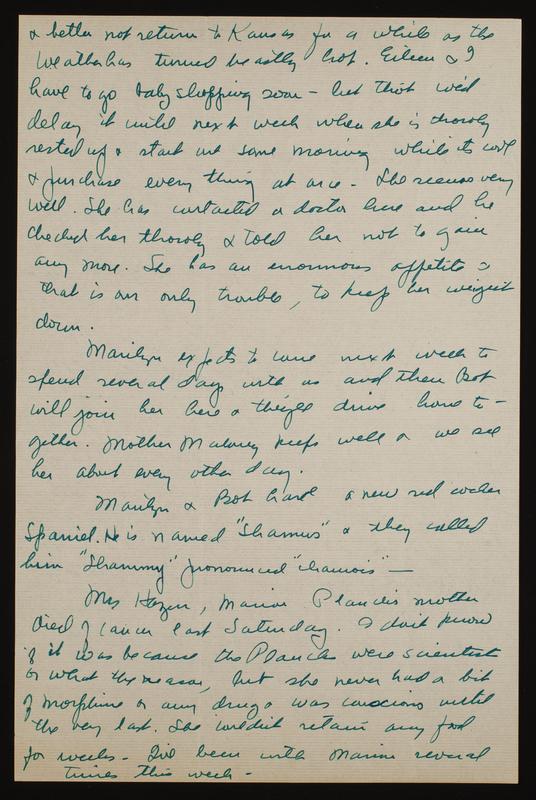 & better not return to Kansas for a while as the
weather has turned beastly hot. Eileen & I
have to go baby shopping soon - but think we'd
delay it until next week when she is thoroly
rested up & start out some morning while its cool
& purchase every thing at once - She seems very
well. She has contacted a doctor here and he
checked her thoroly & told her not to gain
any more. She has an enormous appetite &
that is our only trouble, to keep her weight
down.
Marilyn expects to come next week to
spend several days with us and then Bob
will join her here & they'll drive home to-
gether. Mother Maloney keeps well & we see
her about every other day.
Marilyn & Bob have a new red cocker
Spaniel. He is named "Shamus" & they called
him "Shammy" pronounced "chamois" —
Mrs Hazen, Marion mother
died of cancer last Saturday. I don't know
if it was because the were scientists
or what the reason, but she never had a bit
of morphine or any drug & was conscious until
the very last. She couldn't retain any food
for weeks - I've been with Marion several
times this week -